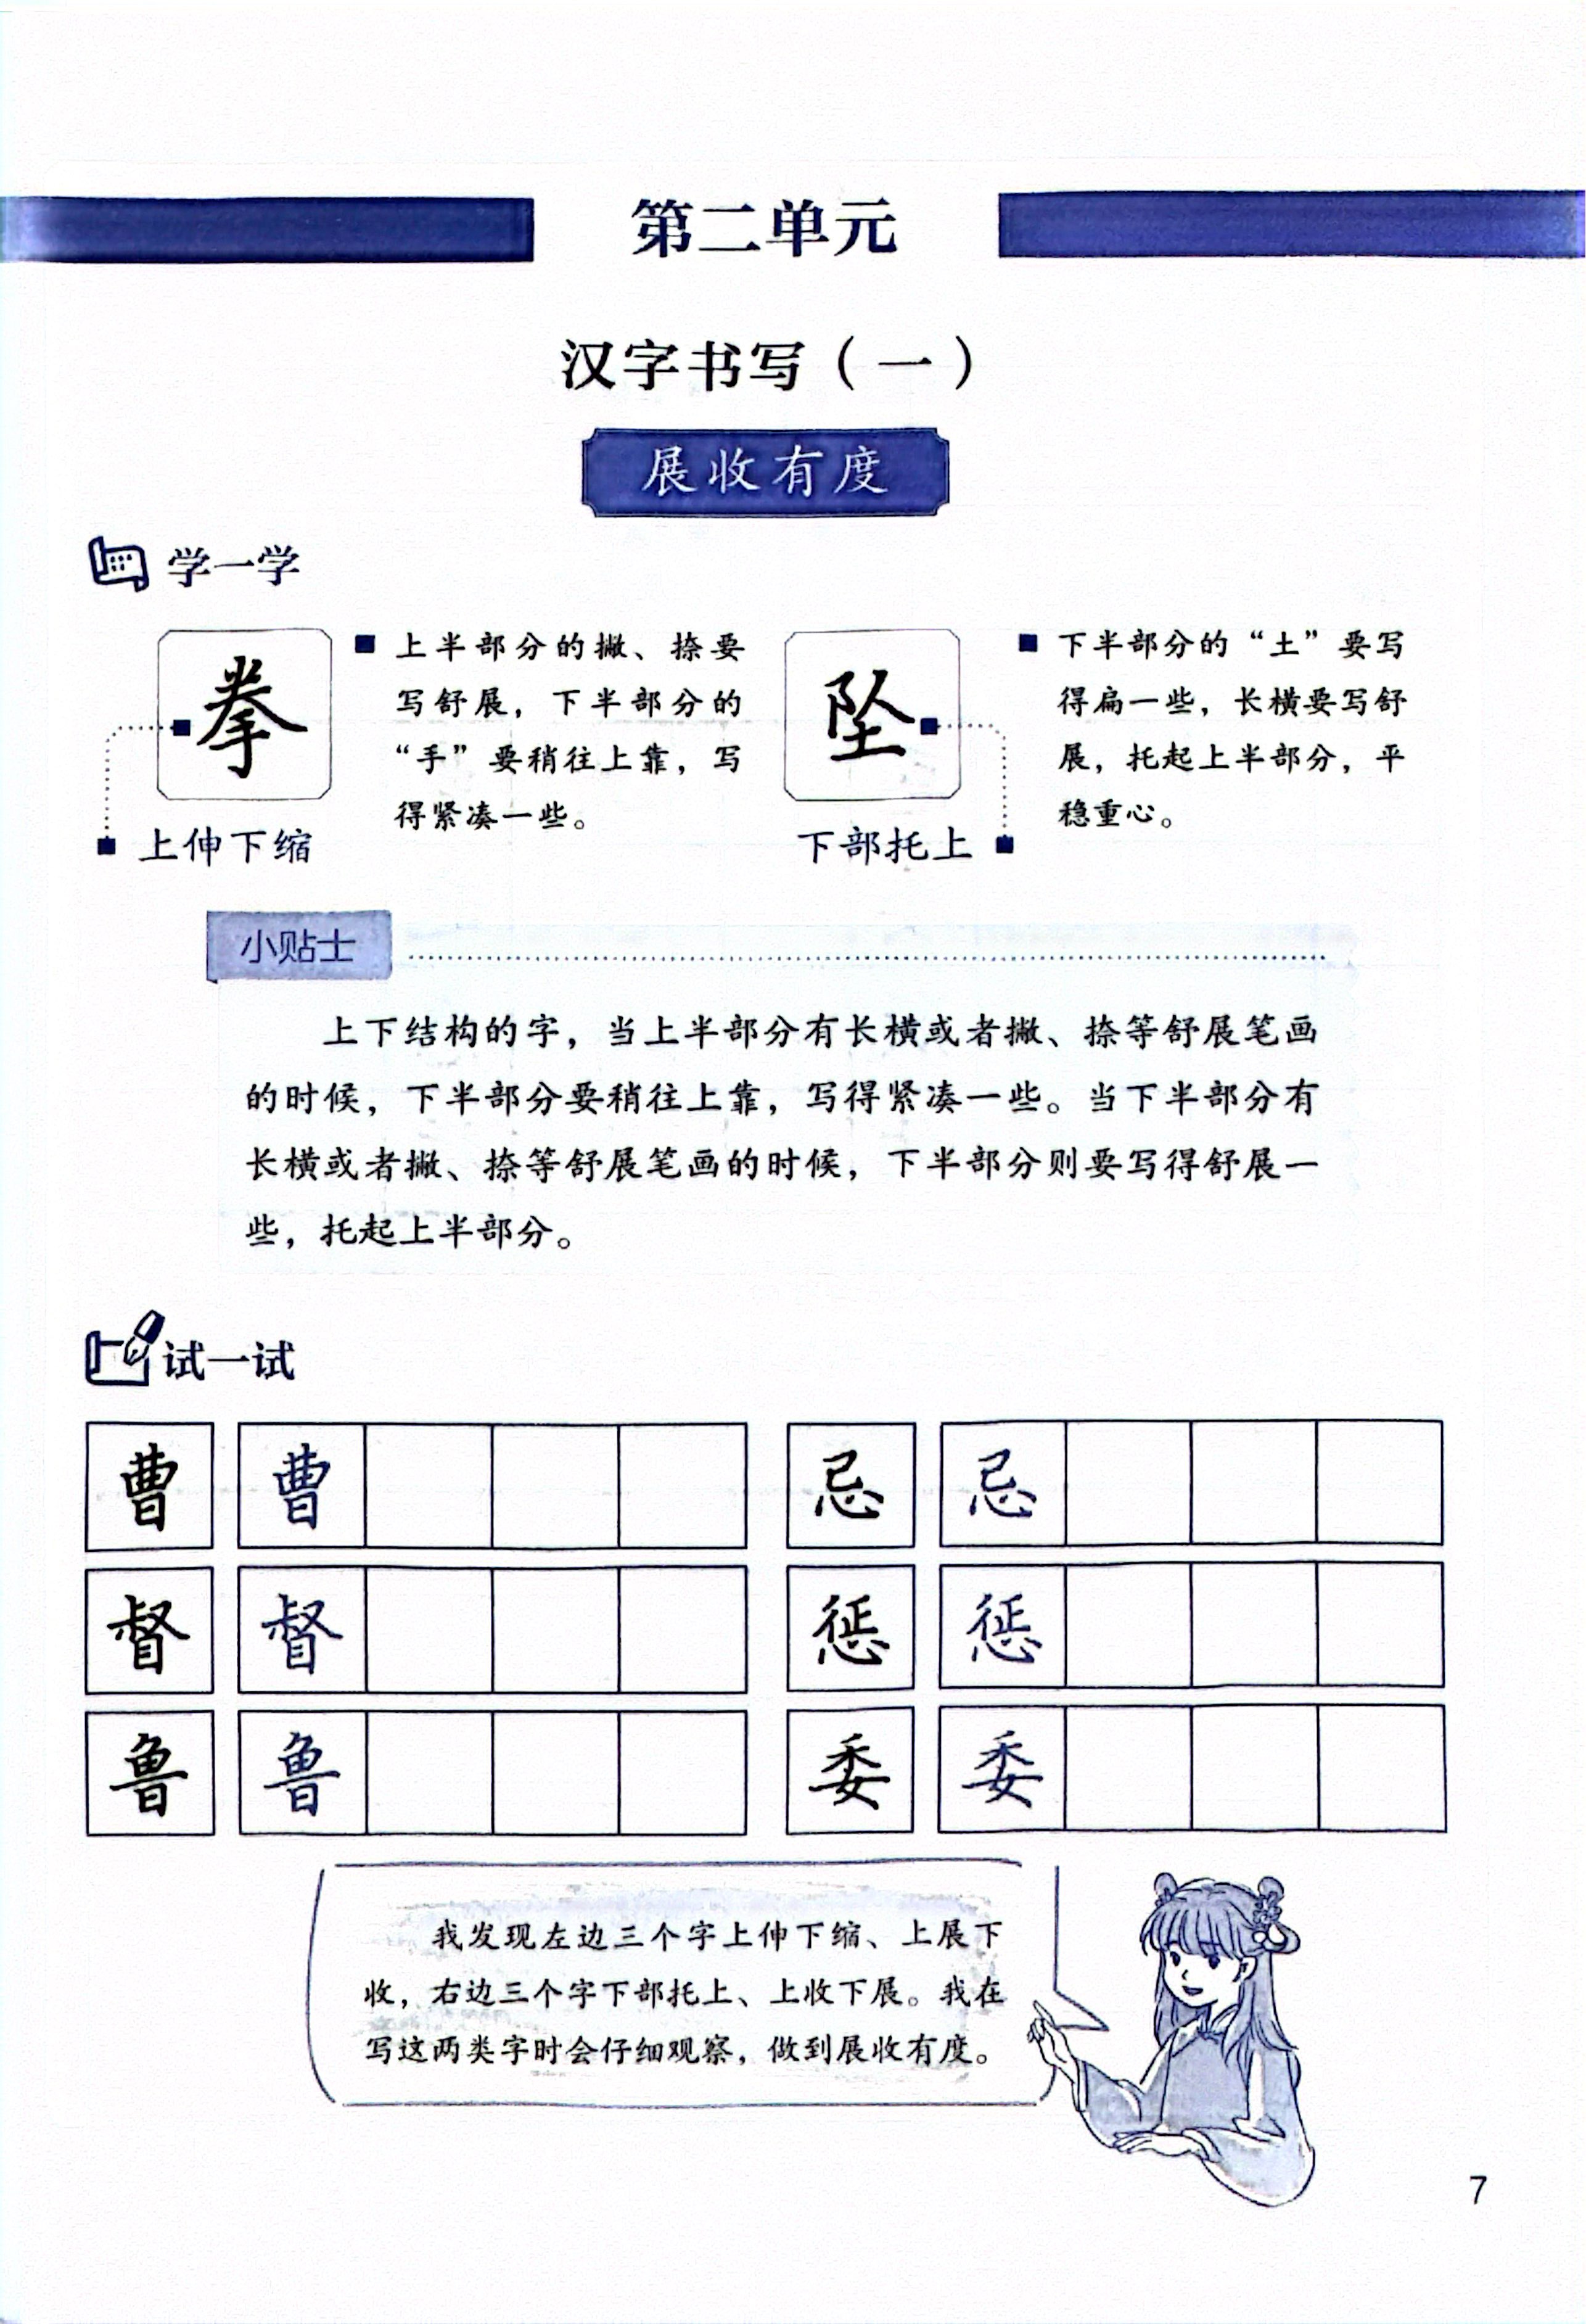 第二单元
汉字书写（一）
展收有度
学一学
拳
上半部分的撇、捺要
写舒展，下半部分的
“手”要稍往上靠，写
得紧凑一些。
上伸下缩
坠
下半部分的“土”要写
得扁一些，长横要写舒
展，托起上半部分，平
稳重心。
下部托上
小贴士
上下结构的字，当上半部分有长横或者撇、捺等舒展笔画
的时候，下半部分要稍往上靠，写得紧凑一些。当下半部分有
长横或者撇、捺等舒展笔画的时候，下半部分则要写得舒展一
些，托起上半部分。
试一试
曹 曹 忌 忌
督 督 惩 惩
鲁 鲁 委 委
我发现左边三个字上伸下缩、上展下
收，右边三个字下部托上、上收下展。我在
写这两类字时会仔细观察，做到展收有度。
7